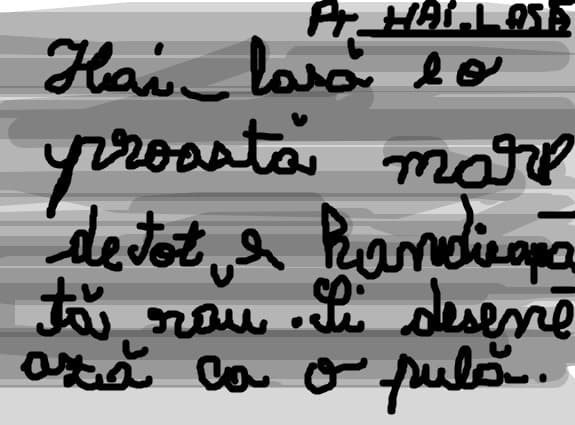 HAI.LASĂ
Hai_ lasă e o
proastă mare
detot, e handicapa
tă rău. Și desene
ază ca o pulă..